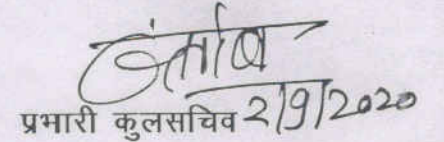 प्रभारी कुलसचिव 2/9/2020